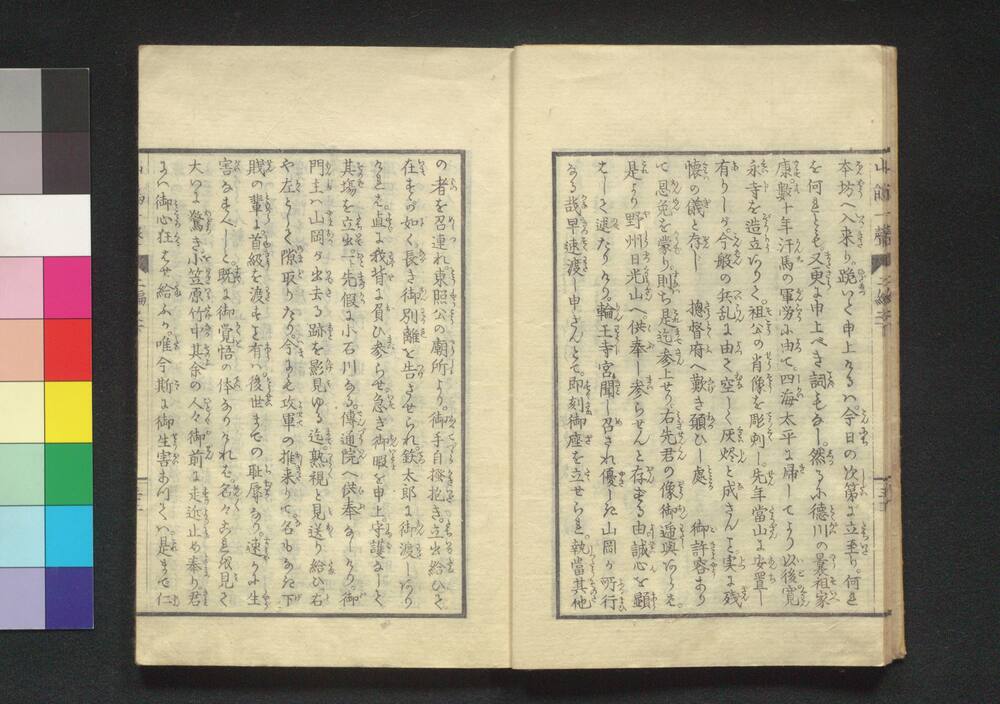 本坊へ入来り。跪いて申上けるハ。今日の次第に立至り。何れ
を何れとも又更に申上べき詞もなし。然るに徳川の曩祖家
康數十年汗馬の軍労に由て。四海太平に帰してより以後寛
永寺を造立ありて。祖公の肖像を彫刻し。先年當山に安置し
有りしが。今般の兵乱に由て空しく灰燼と成さんこと実に残
懐の儀と存じ 摠督府へ歎き願ひし處 御許容あり
て恩免を蒙り。則ち是迄参上せり右先君の像御逓輿あらせ。
是より野州日光山へ。供奉し参らせんと存ずる由誠心を顕
はして述たりける。輪王寺宮聞し召され優しき山岡が所行
なる哉早速渡し申さんとて。即刻御座を立せられ。執當其他
の者を召連れ東照公の廟所より。御手自掻抱き。立出給ひて
在すが如く。長き御別離を告させられ鉄太郎に御渡しあり
ければ。直に我背に負ひ参らせ。急ぎ御暇を申上守護なして
其塲を立出て先假に小石川なる傳通院へ供奉なしける御
門主ハ山岡が出去る跡を影見ゆる迄。熟視と見送り給ひ右
や左として隙取りなり。今にも攻軍の推来りて。名もなき下
賎の輩に首級を渡すこと有ハ。後世までの耻辱なり。速かに生
害なすべしと。既に御覚悟の体ありければ。名々これを見て
大いに驚き。小笠原竹中其余の人々御前に走近止め奉り君
にハ御心狂はせ給ふか。唯今斯に御生害あつてハ。是まで仁